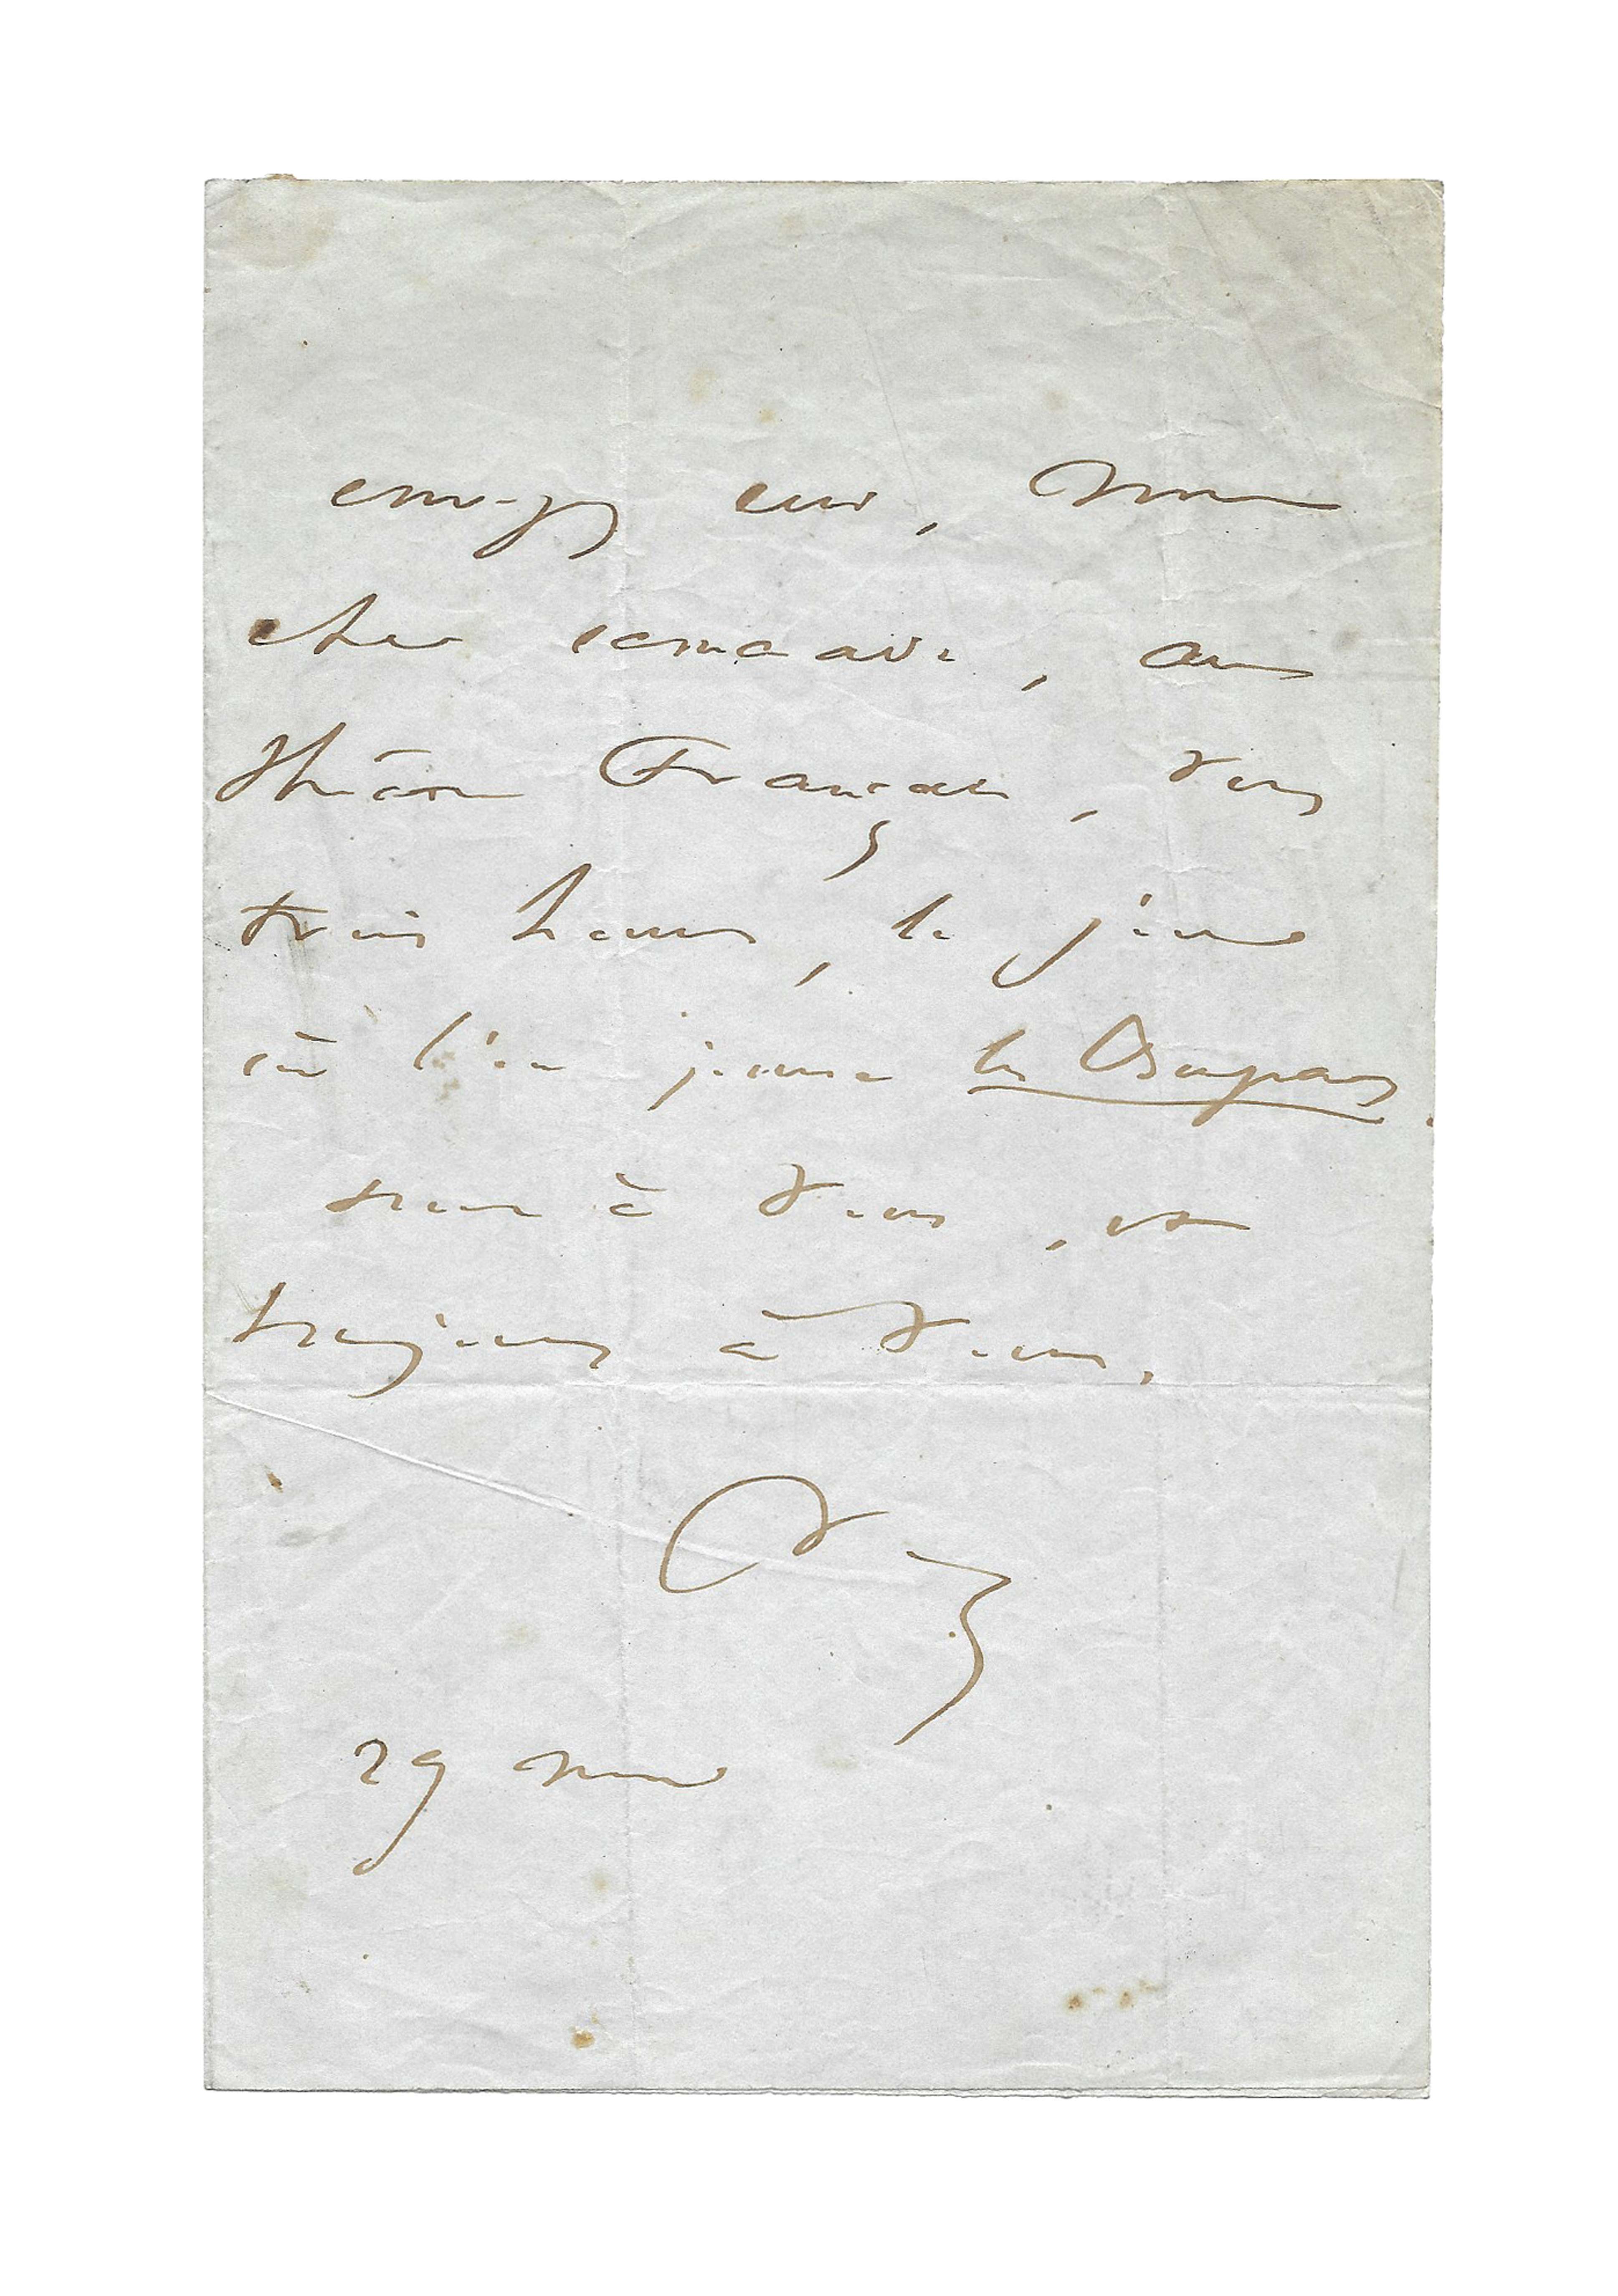 envoyez ceci, mon
cher camarade, au
théâtre Français, vers
trois heures, le jour
où l'on jouera les Burgraves.
tout à vous, et
toujours à vous.
V
29 nov